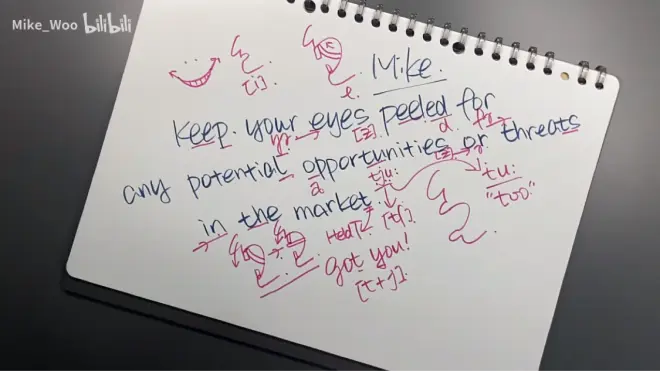 Mike_Woo bilibili
Mike.
[i]
e.
Keep your eyes peeled for
[z]
d
any potential opportunities or threats
[z]
a
tju:
tu:
"too"
in the market.
[tʃ].
got you!
[t+j].